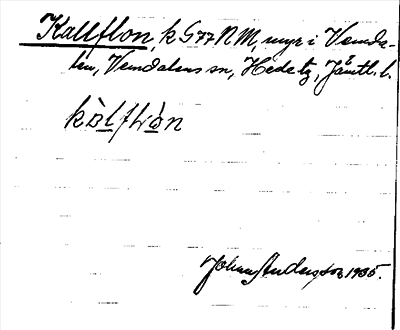 Kallflon, k G77 NM, myr i Vemda-
len, Vemdalens sn, Hede tg, Jämtl. l.
kàlfliàn
Johan Andersson 1935.